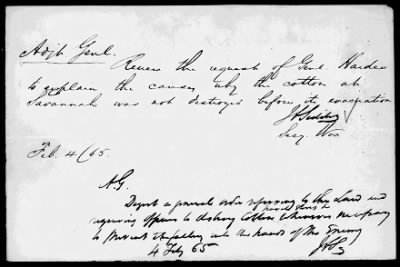 Adjt Genl.
Renew the request of Genl. Hardee
to explain the causes why the cotton at
Savannah was not destroyed before its evacuation
Secy War
Feb. 4/65.
A.G.
a general order referring to the Law and
requiring officers to destroy Cotton whenever necessary
to prevent its falling into the hands of the Enemy
4 Feby 65